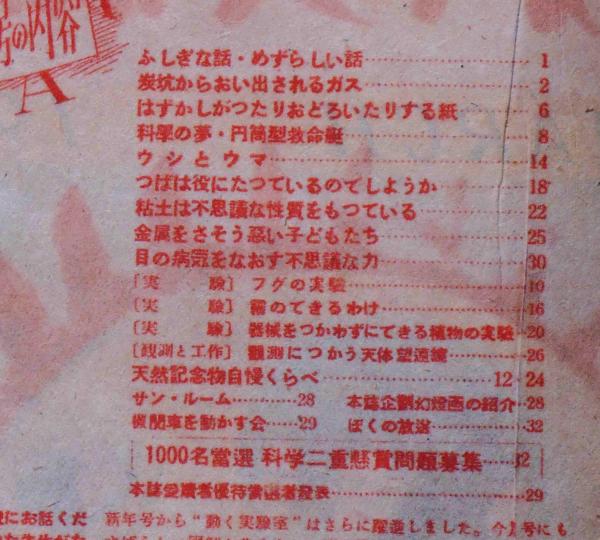 号の内容
ふしぎな話・めずらしい話 1
炭坑からおい出されるガス 2
はずかしがつたりおどろいたりする紙 6
科學の夢・円筒型救命艇 8
ウシとウマ 14
つばは役にたつているのでしようか 18
粘土は不思議な性質をもつている 22
金属をさそう惡い子どもたち 25
目の病気をなおす不思議な力 30
〔実 驗〕 フグの実驗 10
〔実 驗〕 霜のできるわけ 16
〔実 驗〕 器械をつかわずにできる植物の実驗 20
〔観測と工作〕 観測につかう天体望遠鏡 26
天然記念物自慢くらべ 12・24
サン・ルーム 28 本誌企劃幻燈画の紹介 28
機関車を動かす会 29 ぼくの放送 32
1000名當選 科学二重懸賞問題募集 32
本誌愛讀者優待當選者発表 29
にお話くだ 新年号から“動く実驗室”はさらに躍進しました。今月号にも